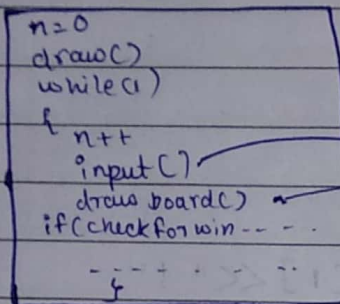 n=0
draw()
while(1)
{
n++
input()
draw board()
if(checkforwin-- - .
- -- - . - -- ..
}